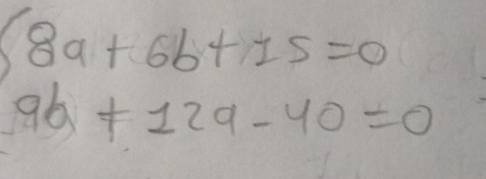 8a + 6b + 15 = 0
9b + 12a - 40 = 0